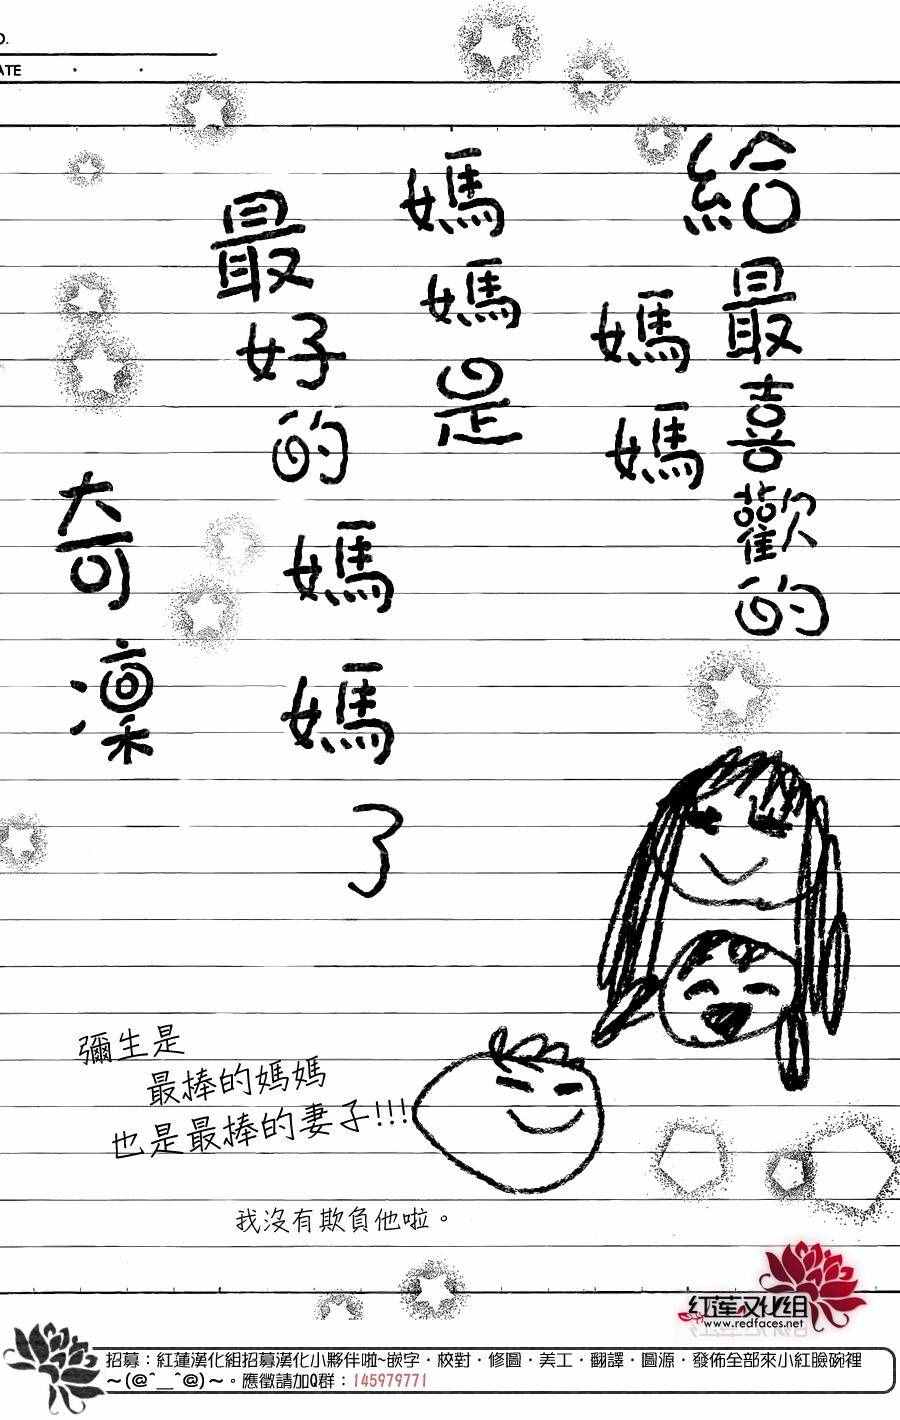 O.
ATE
給最喜歡的
媽媽
媽媽是
最好的媽媽了
奇凜
彌生是
最捧的媽媽
也是最捧的妻子!!!
我沒有欺負他啦。
紅蓮汉化組
www.redfaces.net
招募：紅蓮漢化組招募漢化小夥伴啦~嵌字·校對·修圖·美工·翻譯·圖源·發佈全部來小紅臉碗裡
~(@^__^@)~。應徵請加Q群：145979771